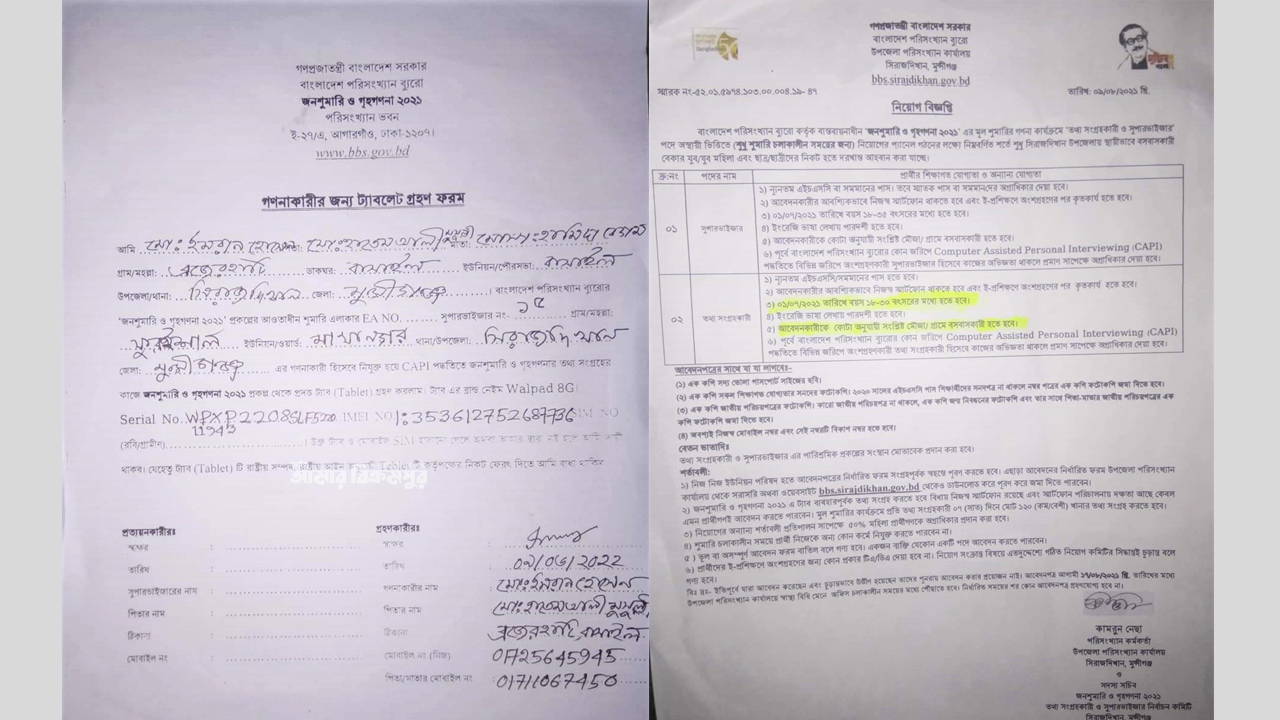 গণপ্রজাতন্ত্রী বাংলাদেশ সরকার
বাংলাদেশ পরিসংখ্যান ব্যুরো
জনশুমারি ও গৃহগণনা ২০২১
পরিসংখ্যান ভবন
ই-২৭/এ, আগারগাঁও, ঢাকা-১২০৭।
www.bbs.gov.bd
গণনাকারীর জন্য ট্যাবলেট গ্রহণ ফরম
আমি মোঃ ইমরান মোঃ হাতেম আলী মুন্সী মাতা: মোসাঃ হামিদা বেগম
গ্রাম/মহল্লা: ব্রজেরহাটি ডাকঘর: রামাইল ইউনিয়ন/পৌরসভা: রামাইল
উপজেলা/থানা: সিরাজদিখান জেলা: মুন্সীগঞ্জ। বাংলাদেশ পরিসংখ্যান ব্যুরোর
'জনশুমারি ও গৃহগণনা ২০২১' প্রকল্পের আওতাধীন শুমারি এলাকার EA NO. সুপারভাইজার নং- ১৫ গ্রাম/মহল্লা:
ইউনিয়ন মালখানগর থানা/উপজেলা: সিরাজদিখান
জেলা: মুন্সীগঞ্জ এর গণনাকারী হিসেবে নিযুক্ত হয়ে CAPI পদ্ধতিতে জনশুমারি ও গৃহগণনার তথ্য সংগ্রহের
কাজে জনশুমারি ও গৃহগণনা ২০২১ প্রকল্প থেকে প্রদত্ত ট্যাব (Tablet) গ্রহণ করলাম। ট্যাব এর ব্রান্ড নেইম Walpad 8G।
Serial No.
IMI NO: 353612752687736 SIM NO
11943
(রবি/গ্রামীন)
থাকব। যেহেতু ট্যাব (Tablet) টি রাষ্ট্রীয় সম্পদ, রাষ্ট্রীয় আইন Tablet টি কর্তৃপক্ষের নিকট ফেরৎ দিতে আমি বাধ্য থাকিব
আমার বিক্রমপুর
প্রত্যায়নকারীরঃ গ্রহণকারীরঃ
স্বাক্ষর : স্বাক্ষর :
তারিখ : তারিখ : ০৯/০৬/২০২২
সুপারভাইজারের নাম : গণনাকারীর নাম : মোঃ ইমরান হোসেন
পিতার নাম : পিতার নাম : মোঃ হাতেম আলী মুন্সী
ঠিকানা : ঠিকানা : ব্রজেরহাটি, রামাইল
মোবাইল নং : মোবাইল নং (নিজ) : 01725645945
পিতা/মাতার মোবাইল নং : 01711067450
গণপ্রজাতন্ত্রী বাংলাদেশ সরকার
বাংলাদেশ পরিসংখ্যান ব্যুরো
উপজেলা পরিসংখ্যান কার্যালয়
সিরাজদিখান, মুন্সীগঞ্জ
bbs.sirajdikhan.gov.bd
স্মারক নং-৫২.০১.৫৯৭৪.১০৩.০০.০০৪.১৯- ৪৭ তারিখ: ০৯/০৮/২০২১ খ্রি.
নিয়োগ বিজ্ঞপ্তি
বাংলাদেশ পরিসংখ্যান ব্যুরো কর্তৃক বাস্তবায়নাধীন 'জনশুমারি ও গৃহগণনা ২০২১' এর মূল শুমারির গণনা কার্যক্রমে 'তথ্য সংগ্রহকারী ও সুপারভাইজার'
পদে অস্থায়ী ভিত্তিতে (শুধু শুমারি চলাকালীন সময়ের জন্য) নিয়োগের প্যানেল গঠনের লক্ষ্যে নিম্নবর্ণিত শর্তে শুধু সিরাজদিখান উপজেলায় স্থায়ীভাবে বসবাসকারী
বেকার যুব/যুব মহিলা এবং ছাত্র/ছাত্রীদের নিকট হতে দরখাস্ত আহবান করা যাচ্ছে।
ক্র:নং পদের নাম প্রার্থীর শিক্ষাগত যোগ্যতা ও অন্যান্য যোগ্যতা
০১ সুপারভাইজার
১) ন্যূনতম এইচএসসি বা সমমানের পাস। তবে স্নাতক পাস বা সমমানদের অগ্রাধিকার দেয়া হবে।
২) আবেদনকারীর আবশ্যিকভাবে নিজস্ব স্মার্টফোন থাকতে হবে এবং ই-প্রশিক্ষণে অংশগ্রহণের পর কৃতকার্য হতে হবে।
৩) ০১/০৭/২০২১ তারিখে বয়স ১৮-৩৫ বৎসরের মধ্যে হতে হবে।
৪) ইংরেজি ভাষা লেখায় পারদর্শী হতে হবে।
৫) আবেদনকারীকে কোটা অনুযায়ী সংশ্লিষ্ট মৌজা/ গ্রামে বসবাসকারী হতে হবে।
৬) পূর্বে বাংলাদেশ পরিসংখ্যান ব্যুরোর কোন জরিপে Computer Assisted Personal Interviewing (CAPI)
পদ্ধতিতে বিভিন্ন জরিপে অংশগ্রহণকারী সুপারভাইজার হিসেবে কাজের অভিজ্ঞতা থাকলে প্রমাণ সাপেক্ষে অগ্রাধিকার দেয়া হবে।
০২ তথ্য সংগ্রহকারী
১) ন্যূনতম এইচএসসি/সমমানের পাস হতে হবে।
২) আবেদনকারীর আবশ্যিকভাবে নিজস্ব স্মার্টফোন থাকতে হবে এবং ই-প্রশিক্ষণে অংশগ্রহণের পর কৃতকার্য হতে হবে।
৩) ০১/০৭/২০২১ তারিখে বয়স ১৮-৩০ বৎসরের মধ্যে হতে হবে।
৪) ইংরেজি ভাষা লেখায় পারদর্শী হতে হবে।
৫) আবেদনকারীকে কোটা অনুযায়ী সংশ্লিষ্ট মৌজা/ গ্রামে বসবাসকারী হতে হবে।
৬) পূর্বে বাংলাদেশ পরিসংখ্যান ব্যুরোর কোন জরিপে Computer Assisted Personal Interviewing (CAPI)
পদ্ধতিতে বিভিন্ন জরিপে অংশগ্রহণকারী তথ্য সংগ্রহকারী হিসেবে কাজের অভিজ্ঞতা থাকলে প্রমাণ সাপেক্ষে অগ্রাধিকার দেয়া হবে।
আবেদনপত্রের সাথে যা যা লাগবেঃ-
(১) এক কপি সদ্য তোলা পাসপোর্ট সাইজের ছবি।
(২) এক কপি সকল শিক্ষাগত যোগ্যতার সনদের ফটোকপি। ২০২০ সালের এইচএসসি পাস শিক্ষার্থীদের সনদপত্র না থাকলে নম্বর পত্রের এক কপি ফটোকপি জমা দিতে হবে।
(৩) এক কপি জাতীয় পরিচয়পত্রের ফটোকপি। কারো জাতীয় পরিচয়পত্র না থাকলে, এক কপি জন্ম নিবন্ধনের ফটোকপি এবং তার সাথে পিতা-মাতার জাতীয় পরিচয়পত্রের এক
কপি ফটোকপি জমা দিতে হবে।
(৪) অবশ্যই নিজস্ব মোবাইল নম্বর এবং সেই নম্বরটি বিকাশ নম্বর হতে হবে।
বেতন ভাতাদিঃ
তথ্য সংগ্রহকারী ও সুপারভাইজার এর পারিশ্রমিক প্রকল্পের সংস্থান মোতাবেক প্রদান করা হবে।
শর্তাবলী:
১) নিজ নিজ ইউনিয়ন পরিষদ হতে আবেদনপত্রের নির্ধারিত ফরম সংগ্রহপূর্বক স্বহস্তে পূরণ করতে হবে। এছাড়া আবেদনের নির্ধারিত ফরম উপজেলা পরিসংখ্যান
কার্যালয় থেকে সরাসরি অথবা ওয়েবসাইট bbs.sirajdikhan.gov.bd থেকেও ডাউনলোড করে পূরণ করে জমা দিতে পারবেন।
২) জনশুমারি ও গৃহগণনা ২০২১ এ ট্যাব ব্যবহারপূর্বক তথ্য সংগ্রহ করতে হবে বিধায় নিজস্ব স্মার্টফোন রয়েছে এবং স্মার্টফোন পরিচালনায় দক্ষতা আছে কেবল
এমন প্রার্থীগণই আবেদন করতে পারবেন। মূল শুমারির কার্যক্রমে প্রতি তথ্য সংগ্রহকারী ০৭ (সাত) দিনে মোট ১২০ (কম/বেশী) খানার তথ্য সংগ্রহ করতে হবে।
৩) নিয়োগের অন্যান্য শর্তাবলী প্রতিপালন সাপেক্ষে ৫০% মহিলা প্রার্থীগণকে অগ্রাধিকার প্রদান করা হবে।
৪) শুমারি চলাকালীন সময়ে প্রার্থী নিজেকে অন্য কোন কর্মে নিযুক্ত করতে পারবেন না।
৫) ভুল বা অসম্পূর্ণ আবেদন ফরম বাতিল বলে গণ্য হবে। একজন ব্যক্তি যেকোন একটি পদে আবেদন করতে পারবেন।
৬) প্রার্থীদের ই-প্রশিক্ষণে অংশগ্রহণের জন্য কোন প্রকার টিএ/ডিএ দেয়া হবে না। নিয়োগ সংক্রান্ত বিষয়ে এতদুদ্দেশ্যে গঠিত নিয়োগ কমিটির সিদ্ধান্তই চূড়ান্ত বলে
গণ্য হবে।
বিঃ দ্রঃ- ইতিপূর্বে যারা আবেদন করেছেন এবং চূড়ান্তভাবে উত্তীর্ণ হয়েছেন তাদের পুনরায় আবেদন করার প্রয়োজন নাই। আবেদনপত্র আগামী ১৭/০৮/২০২১ খ্রি. তারিখের মধ্যে
উপজেলা পরিসংখ্যান কার্যালয়ে স্বাস্থ্য বিধি মেনে অফিস চলাকালীন সময়ের মধ্যে পৌছাতে হবে। নির্ধারিত সময়ের পর কোন আবেদন গ্রহণযোগ্য হবে না।
কামরুন নেছা
পরিসংখ্যান কর্মকর্তা
উপজেলা পরিসংখ্যান কার্যালয়
সিরাজদিখান, মুন্সীগঞ্জ
ও
সদস্য সচিব
জনশুমারি ও গৃহগণনা ২০২১
তথ্য সংগ্রহকারী ও সুপারভাইজার নির্বাচন কমিটি
সিরাজদিখান, মুন্সীগঞ্জ